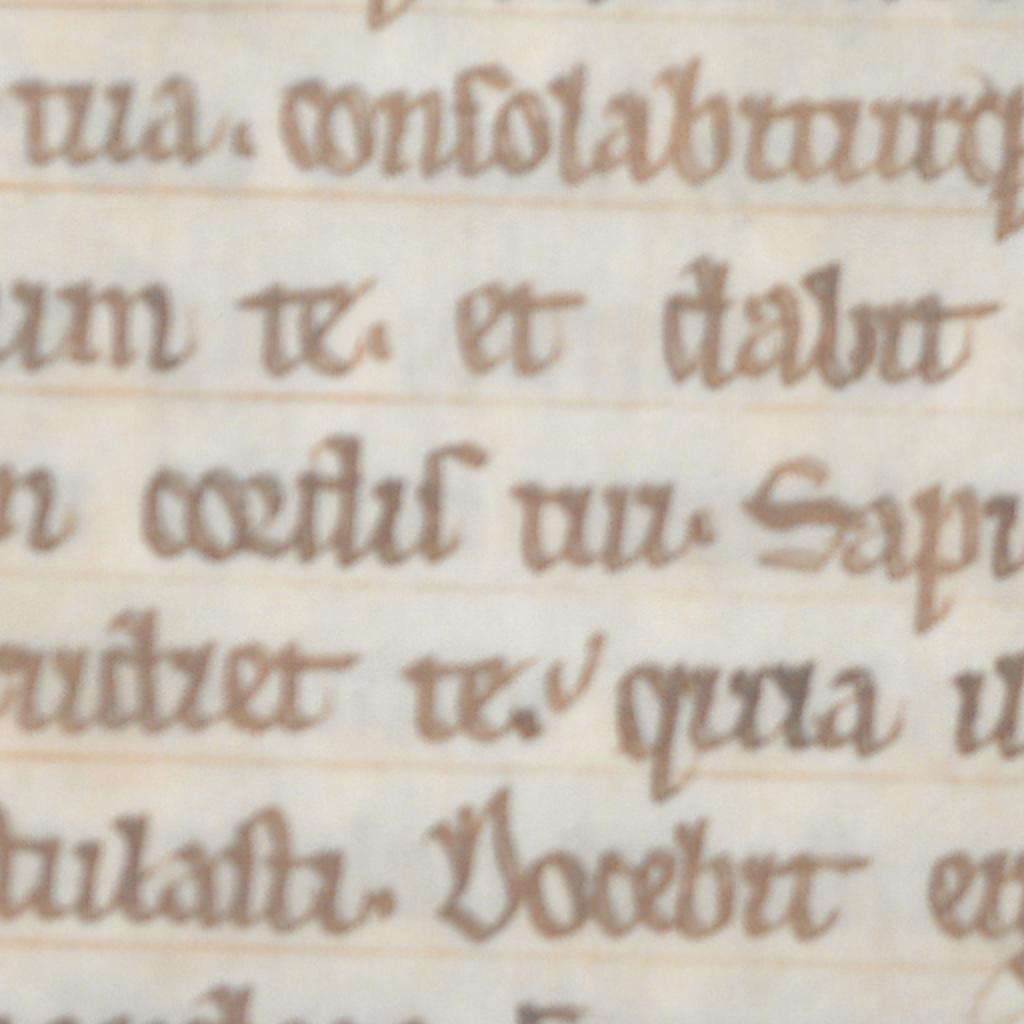 tua. consolabiturq
um te. et dabit
n cordis tui. Sapi
audiet te. quia
tulasti. Docebit